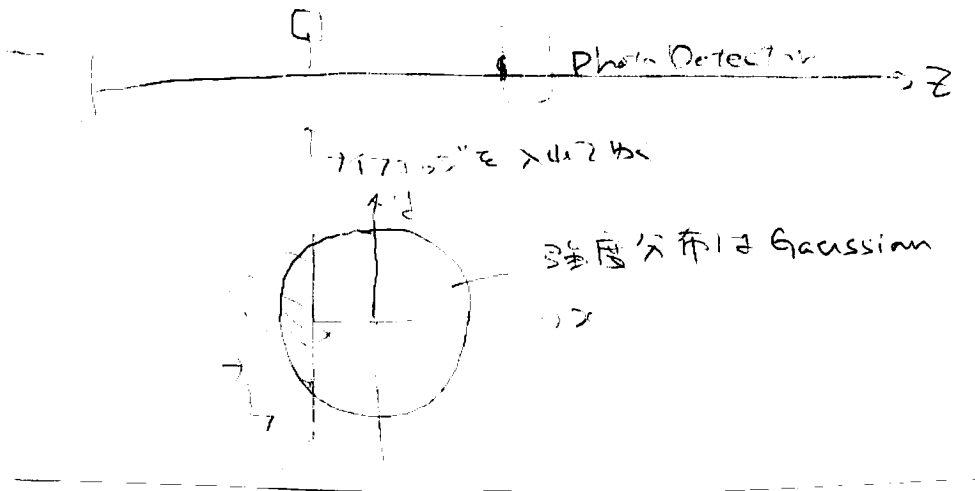 Photo Detector
z
ナイフエッジを入れてゆく
y
強度分布は Gaussian
x
x